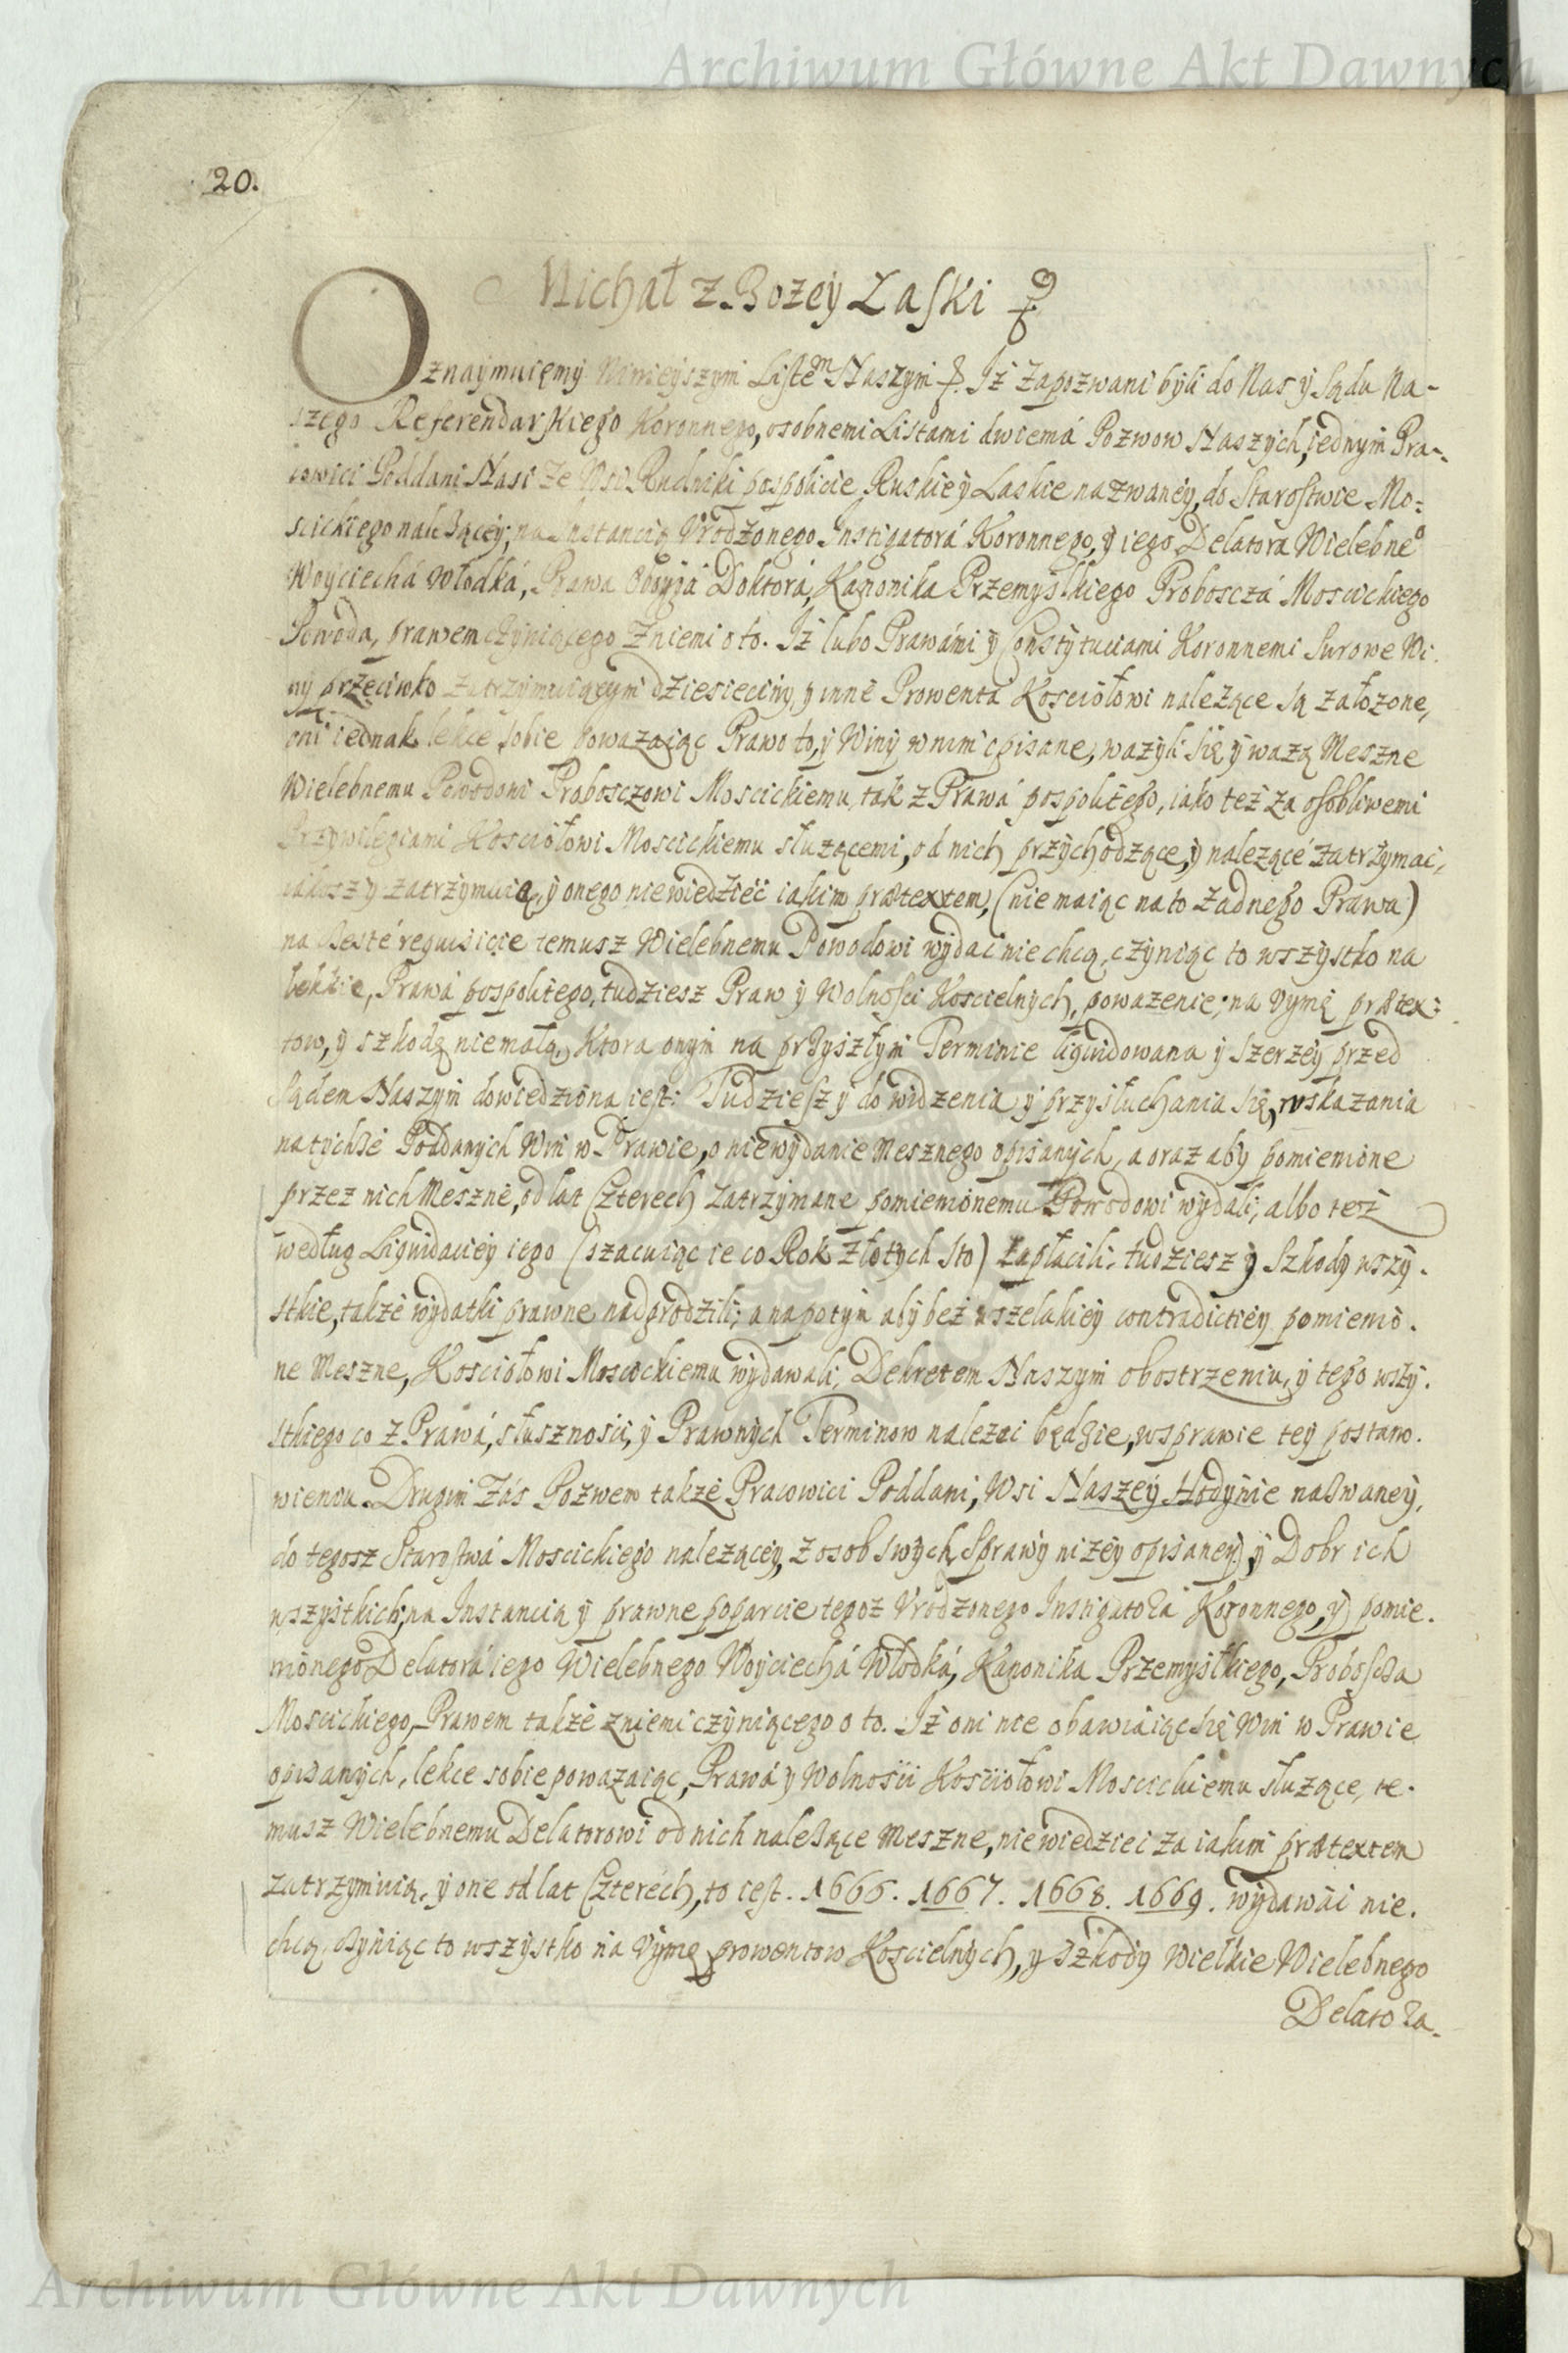 Archiwum Główne Akt Dawnych
20.
Michał z Bozey Łaski
Oznaymuięmy Ninieyszym Listem Naszym Iż Zapozwani byli do Nas y Sądu Na-
szego Referendarskiego Koronnego, osobnemi Listami dwiemá Pozwow Naszych, iednym Pra-
cowici Poddani Nasi ze Wsi Rudniki pospolicie Ruskiey Laskie nazwaney, do Starostwie Mo:
scickiego należącey, na Instancią Vrodzonego Instigatorá Koronnego, y iego Delatora Wielebneo
Woyciechá Włodká, Prawa Oboyga Doktorá, Kanonika Przemyslkiego Proboscza Moscickiego
Powoda, prawem czyniącego z niemi o to. Iż lubo Prawámi y Constytuciami Koronnemi Surowe Wi.
ny przeciwko zatrzymuiącym dziesieciny, y inne Prowenta Kosciołowi nalezące są załozone,
oni iednak lekce sobie powazaiąc Prawo to, y Winy w nim opisane, wazyli się y wazą Meszne
Wielebnemu Powodowi Proboszczowi Moscickiemu, tak z Prawá pospolitego, iako też za osobliwemi
Przywilegiami Kosciołowi Moscickiemu słuzącemi, od nich przychodzące, y nalezące zatrzymac,
iakosz y zatrzymuią, y onego niewiedzieć iakim prætextem, (nie maiąc na to Żadnego Prawa)
na częste requisicie temusz Wielebnemu Powodowi wydac nie chcą, czyniąc to wszystko na
lekkie, Prawá pospolitego, tudziesz Praw y Wolnosci Koscielnych, powazenie; na Vymę prætex:
tow, y szkodę niemałą, Ktora onym na przyszłym Terminie liquidowana y szerzey przed
Sądem Naszym dowiedziona iest: Tudziesz y do widzenia y przysłuchania się, wskazania
na tychże Poddanych Win w Prawie, o niewydanie Mesznego opisanych, a oraz aby pomienione
przez nich Meszne, od lat Czterech zatrzymane pomienionemu Powodowi wydali; albo też
według Liquidaciey iego (szacuiąc ie co Rok złotych sto) zapłacili; tudziesz y Szkody wszy.
stkie, także wydatki prawne nadgrodzili; a na potym aby bez wszelakiey contradictiey pomienio.
ne Meszne, Kosciołowi Moscickiemu wydawali; Dekretem Naszym obostrzeniu, y tego wszy.
stkiego co z Prawá, słusznosci, y Prawnych Terminow nalezec będzie, w sprawie tey postano.
wieniu. Drugim Zás Pozwem takżе Pracowici Poddani, Wsi Naszey Hodynie nazwaney,
do tegosz Starostwá Moscickiego nalezącey, z osob swych, Sprawy nizey opisaney, y Dobr ich
wszystkich, na Instancią y prawne poparcie tegoż Vrodzonego Instigatora Koronnego, y pomie.
nionego Delatorá iego Wielebnego Woyciechá Włodká, Kanonika Przemyslkiego, Proboscza
Moscickiego, Prawem także z niemi czyniącego o to. Iż oni nie obawiaiąc się Win w Prawie
opisanych, lekce sobie powazaiąc, Prawá y Wolnosci Kosciołowi Moscickiemu słuzące, te.
musz Wielebnemu Delatorowi od nich nalezące Meszne, niewiedziec za iakim prætextem
zatrzymuią, y one od lat Czterech, to iest. 1666. 1667. 1668. 1669. wydawác nie.
chcą, czyniąc to wszystko na Vymę prowentow Koscielnych, y szkody wielkie Wielebnego
Delatora.
Archiwum Główne Akt Dawnych